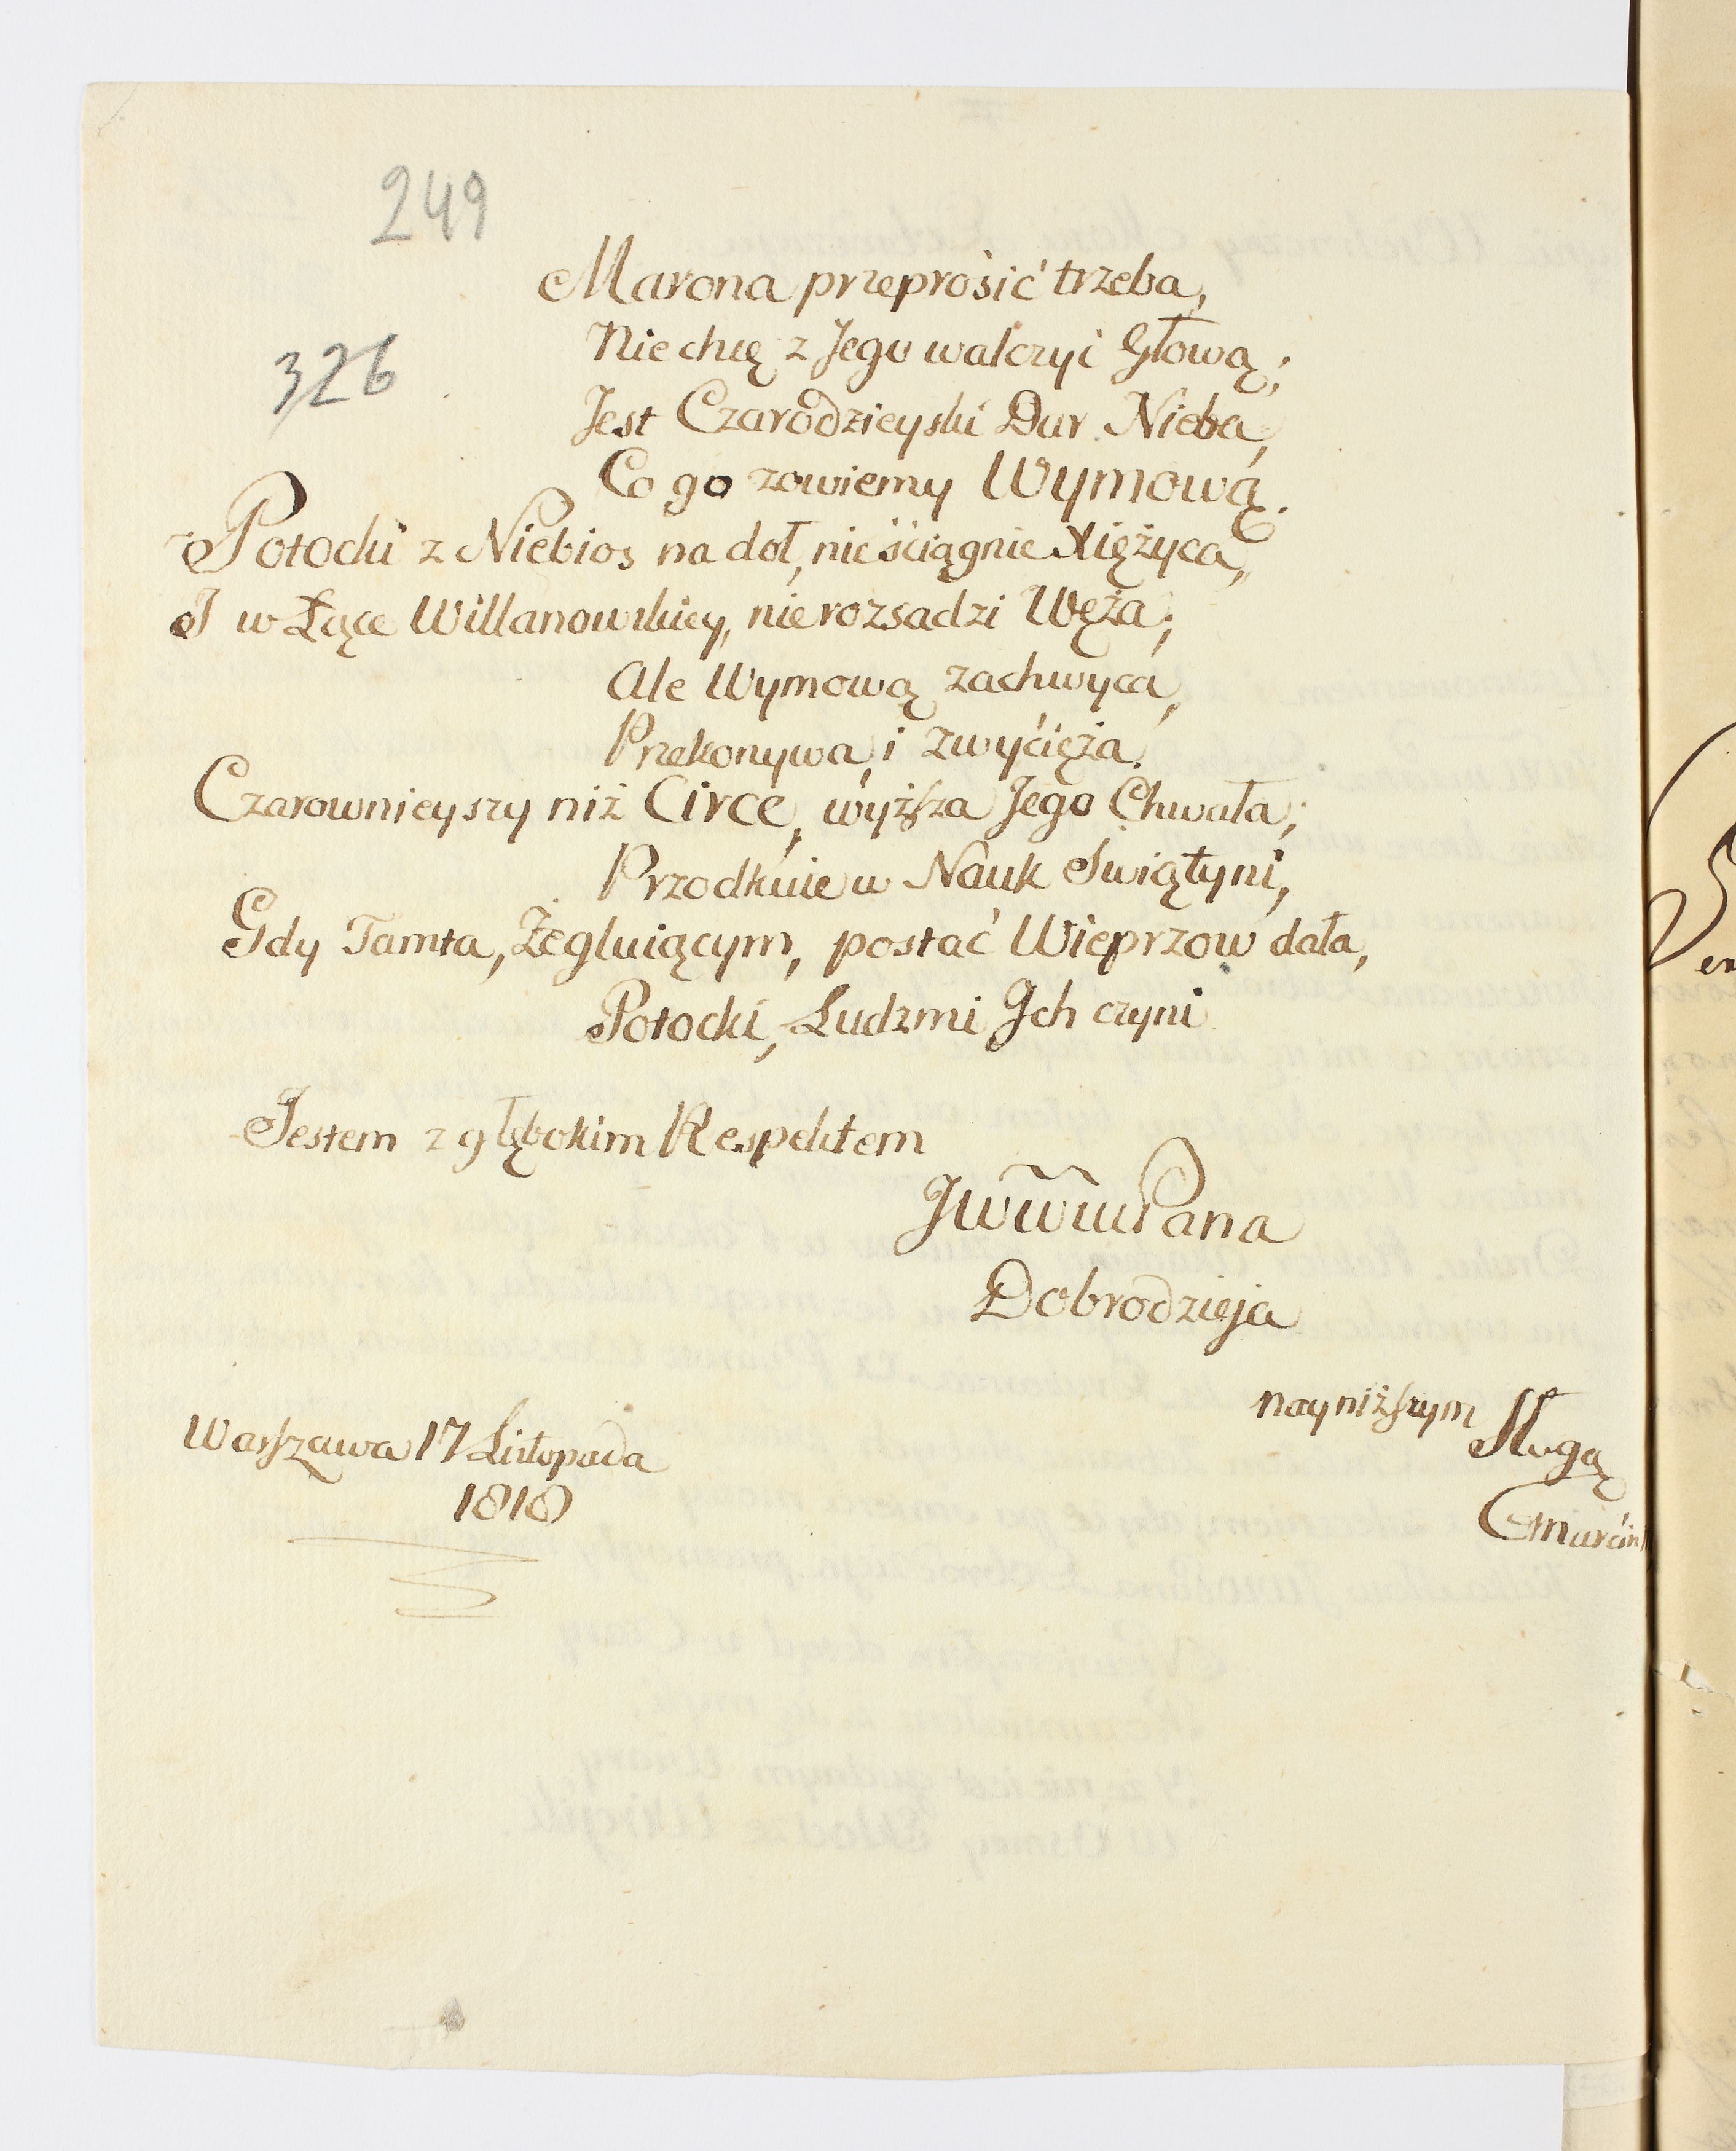 249
Marona przeprosić trzeba,
326
Nie chcę z Jego walczyć Głową;
Jest Czarodzieyski Dar Nieba,
Co go zowiemy Wymową.
Potocki z Niebios na doł, nie ściągnie Xiężyca,
I w Łące Willanowskiey, nie rozsadzi Węża;
Ale Wymową zachwyca,
Przekonywa, i zwycięża.
Czarownieyszy niż Circe, wyższa Jego Chwała;
Przodkuie w Nauk Swiątyni,
Gdy Tamta, Żegluiącym, postać Wieprzow dała,
Potocki, Ludzmi Ich czyni
Jestem z głębokim Respektem
JWWWPana
Dobrodzieja
nayniższym
Sługą
Warszawa 17 Listopada
1818